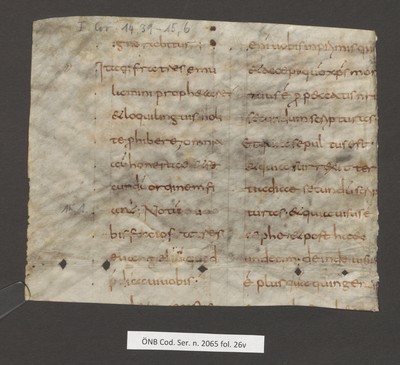 I. Cor. 14, 38-15, 6
ignorabitur
Itaq; fratres emu
lamini prophetare
& loqui linguis noli
te phibere omnia
aut honeste
cundu ordinem fi
ant. Notu
bis facio fratres
euang eliu quod
p dicaui uobis
enim uobis in primis qu
& accepi quo xps mor
tuus e p peccatis n
secundum scripturas
Et quia sepultus est
& quia surrexit ter
tia die secundu scrip
turas & quia uisus e
cephe & post haec
undecim deinde uisus
e plus qua quingen
ÖNB Cod. Ser. n. 2065 fol. 26v